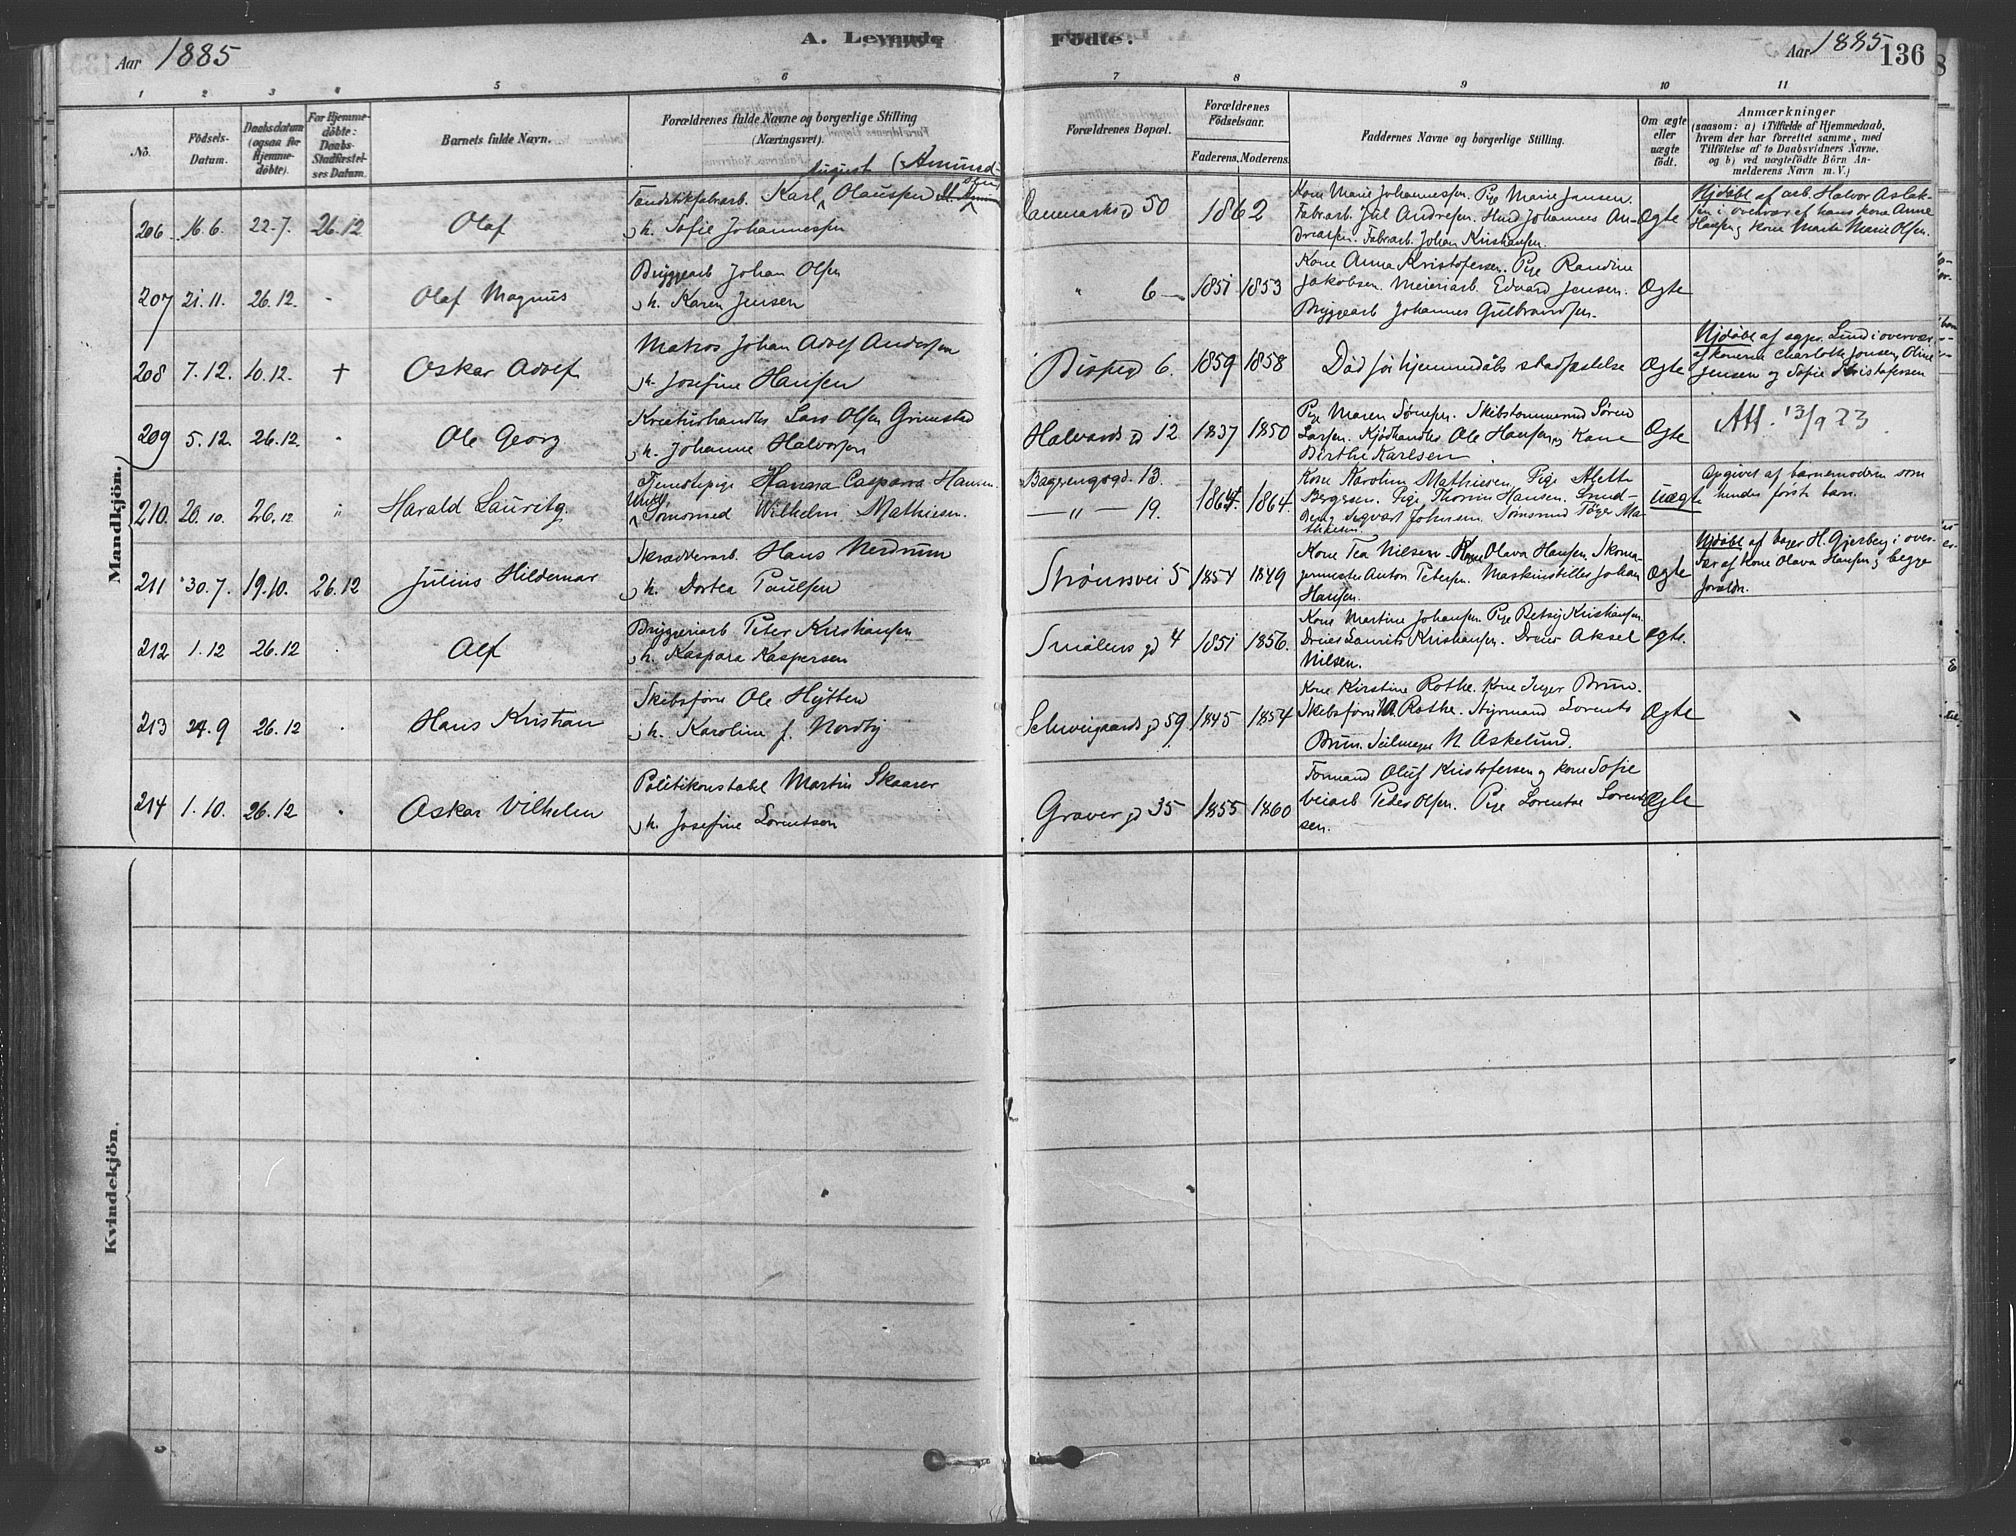 Aar 1885
A. Levende Födte.
Aar 1885
136
1 2 3 4 5 6 7 8 9 10 11
No.
Födsels-
Datum.
Daabsdatum
(ogsaa for
Hjemme-
döbte).
For Hjemme-
döbte:
Daabs-
Stadfæstel-
ses Datum.
Barnets fulde Navn.
Forældrenes fulde Navne og borgerlige Stilling
(Næringsvei).
Forældrenes Bopæl.
Forældrenes
Födselsaar.
Faderens. Moderens.
Faddernes Navne og borgerlige Stilling.
Om ægte
eller
uægte
födt.
Anmærkninger
(saasom: a) i Tilfælde af Hjemmedaab,
hvem der har forrettet samme, med
Tilföielse af to Daabsvidners Navne,
og b) ved uægtefödte Börn An-
melderens Navn m. V.)
Mandkjön.
206. 16.6. 22.7. 26.12 Olaf
August (Amund-
Tændstikfabrarb. Karl Olaussen
h. Sofie Johannessen
Danmarksgd 50
1862
Kone Marie Johannessen. Pige Marie Jansen.
Fabrarb. Juel Andresen. Hmd Johannes An-
dreassen. Fabrarb. Johan Kristiansen.
Ægte
Hjdøbt af arb. Halvor Aslak-
sen i overvær af hans kone Anne
Hansen og kone Marte Marie Olsen.
207 21.11. 26.12. - Olaf Magnus
Bryggearb Johan Olsen
h. Karen Jensen
" 6 -
1851 1853
Kone Anna Kristofersen. Pige Randine
Jakobsen. Meieriarb. Edvard Jensen.
Bryggearb Johannes Gulbrandsen.
Ægte
208 7.12. 10.12. + Oskar Adolf
Matros Johan Adolf Andersen
h. Josefine Hansen
Bispegd 6.
1859 1858
Død før hjemmedåbs stadfæstelse
Ægte
Hjdøbt af sgpr. Lund i overvær
af konerne Charlotte Jonsen, Oline
Jensen og Sofie Kristofersen
209 5.12. 26.12. . Ole Georg
Kreaturhandler Lars Olsen Grimstad
h. Johanne Halvorsen
Halvardsgd 12
1837 1850
Pige Maren Sørensen. Skibstømmermd Søren
Larsen. Kjødhandler Ole Hansen og Kone
Berthe Karlsen
Ægte
Att. 13/9 23.
210. 20.10. 26.12 " Harald Lauritz.
Tjenestepige Hanna Casparra Hansen.
Ungk. Sømand Wilhelm Mathiesen.
13.
— " — 19.
1864. 1864.
Kone Karoline Mathiesen. Pige Alette
Bergesen. Pige Thorine Hansen.
Uægte
Opgivet af barnemoderen som
hendes første barn.
211 30.7. 19.10. 26.12 Julius Hildemar
Skrædderarb. Hans Nesdrum
h. Dortea Paulsen
Strømsvei 5
1854 1849
Kone Tea Nilsen. Kone Olava Hansen. Skoma-
germester Anton Petersen. Maskinstiller Johan
Hansen.
Ægte
Hjdøbt af bager H. Gjerberg i over-
vær af Kone Olava Hansen og begge
foræld.
212 1.12 26.12 . Alf
Bryggeriarb Peter Kristiansen
h. Kaspara Kaspersen
Smålensgd 4
1851 1856.
Kone Martine Johansen. Pige Betsy Kristiansen.
Dreier Laurits Kristiansen. Dreier Aksel
Nilsen.
Ægte.
213 24.9 26.12 . Hans Kristian
Skibsfører Ole Hytten
h. Karoline f. Nordby
Schweigaardsgd 59
1845 1854
Kone Kirstine Rothe. Kone Inger Brun.
Skibsfører Rothe. Styrmand Lorents
Brun. Seilmager N. Askelund.
Ægte
214 1.10. 26.12 . Oskar Vilhelm
Politikonstabel Martin Skaarer
h. Josefine Lorentsen
Grøvergd 35
1855 1860
Formand Oluf Kristofersen og kone Sofie
Veiarb Peder Olsen. Pige Lorentse Lorent-
sen.
Ægte
Kvindekjön.